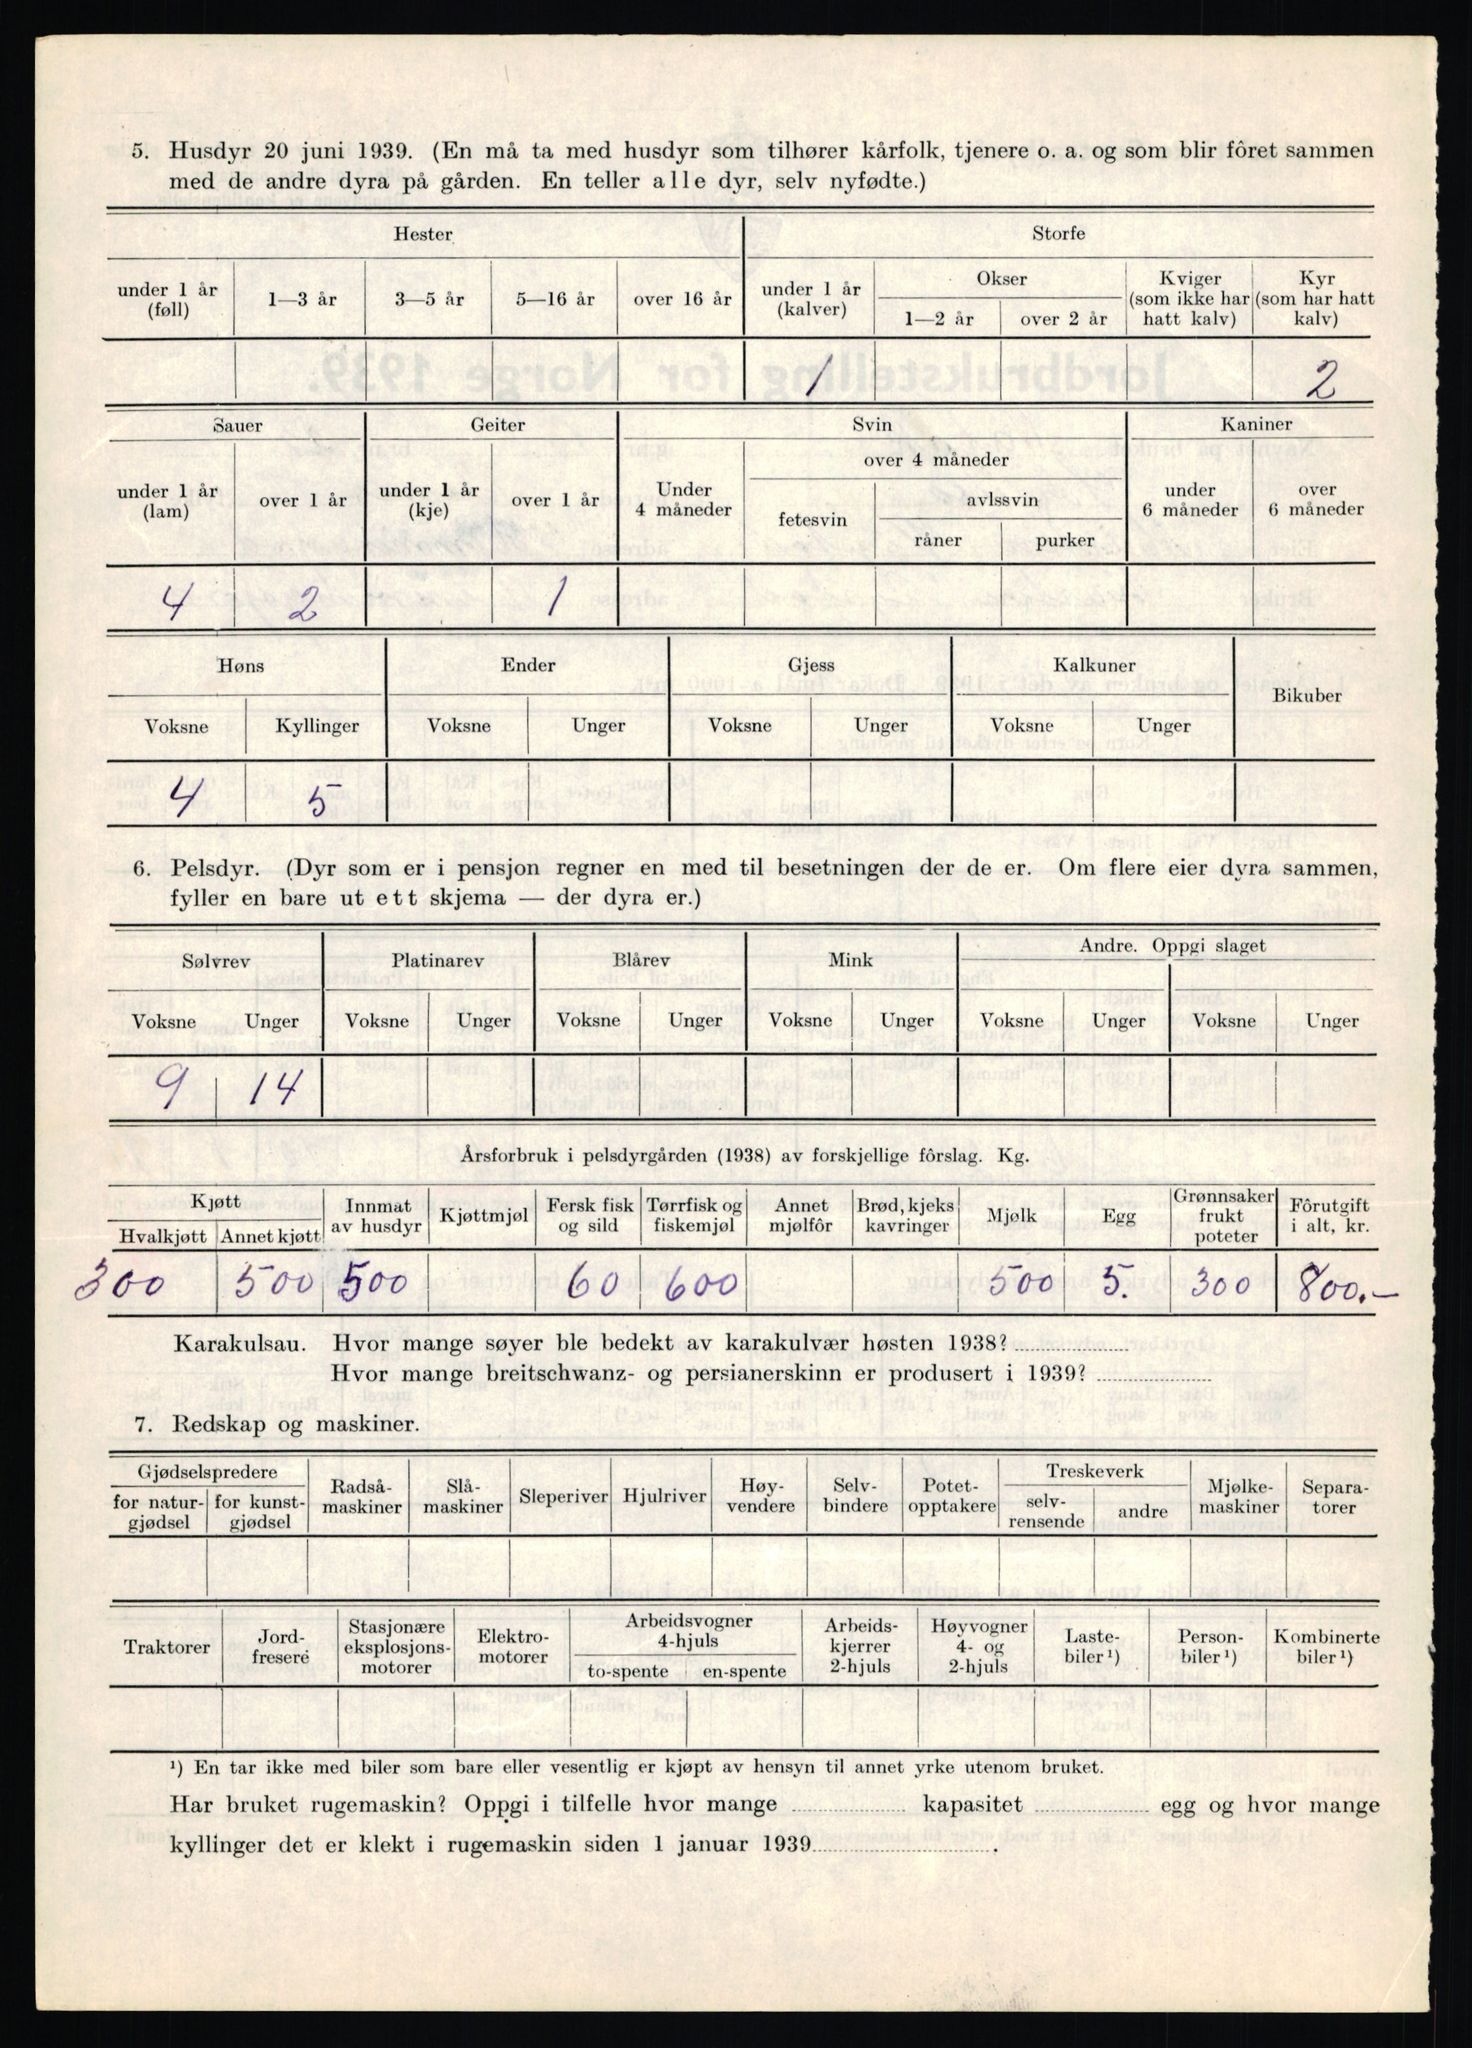 5. Husdyr 20 juni 1939. (En må ta med husdyr som tilhører kårfolk, tjenere o. a. og som blir fôret sammen
med de andre dyra på gården. En teller alle dyr, selv nyfødte.)
Hester Storfe
under 1 år (føll) 1—3 år 3—5 år 5—16 år over 16 år under 1 år (kalver) Okser 1—2 år over 2 år Kviger (som ikke har hatt kalv) Kyr (som har hatt kalv)
1 2
Sauer Geiter Svin Kaniner
under 1 år (lam) over 1 år under 1 år (kje) over 1 år Under 4 måneder over 4 måneder fetesvin avlssvin råner purker under 6 måneder over 6 måneder
4 2 1
Høns Ender Gjess Kalkuner Bikuber
Voksne Kyllinger Voksne Unger Voksne Unger Voksne Unger
4 5
6. Pelsdyr. (Dyr som er i pensjon regner en med til besetningen der de er. Om flere eier dyra sammen,
fyller en bare ut ett skjema — der dyra er.)
Sølvrev Platinarev Blårev Mink Andre. Oppgi slaget
Voksne Unger Voksne Unger Voksne Unger Voksne Unger Voksne Unger Voksne Unger
9 14
Årsforbruk i pelsdyrgården (1938) av forskjellige fôrslag. Kg.
Kjøtt Hvalkjøtt Annet kjøtt Innmat av husdyr Kjøttmjøl Fersk fisk og sild Tørrfisk og fiskemjøl Annet mjølfôr Brød, kjeks kavringer Mjølk Egg Grønnsaker frukt poteter Fôrutgift i alt, kr.
300 500 500 60 600 500 5. 300 800.—
Karakulsau. Hvor mange søyer ble bedekt av karakulvær høsten 1938?
Hvor mange breitschwanz- og persianerskinn er produsert i 1939?
7. Redskap og maskiner.
Gjødselspredere for natur-gjødsel for kunst-gjødsel Radså-maskiner Slå-maskiner Sleperiver Hjulriver Høy-vendere Selv-bindere Potet-opptakere Treskeverk selv-rensende andre Mjølke-maskiner Separa-torer
Traktorer Jord-fresere Stasjonære eksplosjons-motorer Elektro-motorer Arbeidsvogner 4-hjuls to-spente en-spente Arbeids-kjerrer 2-hjuls Høyvogner 4- og 2-hjuls Laste-biler ¹) Person-biler ¹) Kombinerte biler ¹)
¹) En tar ikke med biler som bare eller vesentlig er kjøpt av hensyn til annet yrke utenom bruket.
Har bruket rugemaskin? Oppgi i tilfelle hvor mange kapasitet egg og hvor mange
kyllinger det er klekt i rugemaskin siden 1 januar 1939.